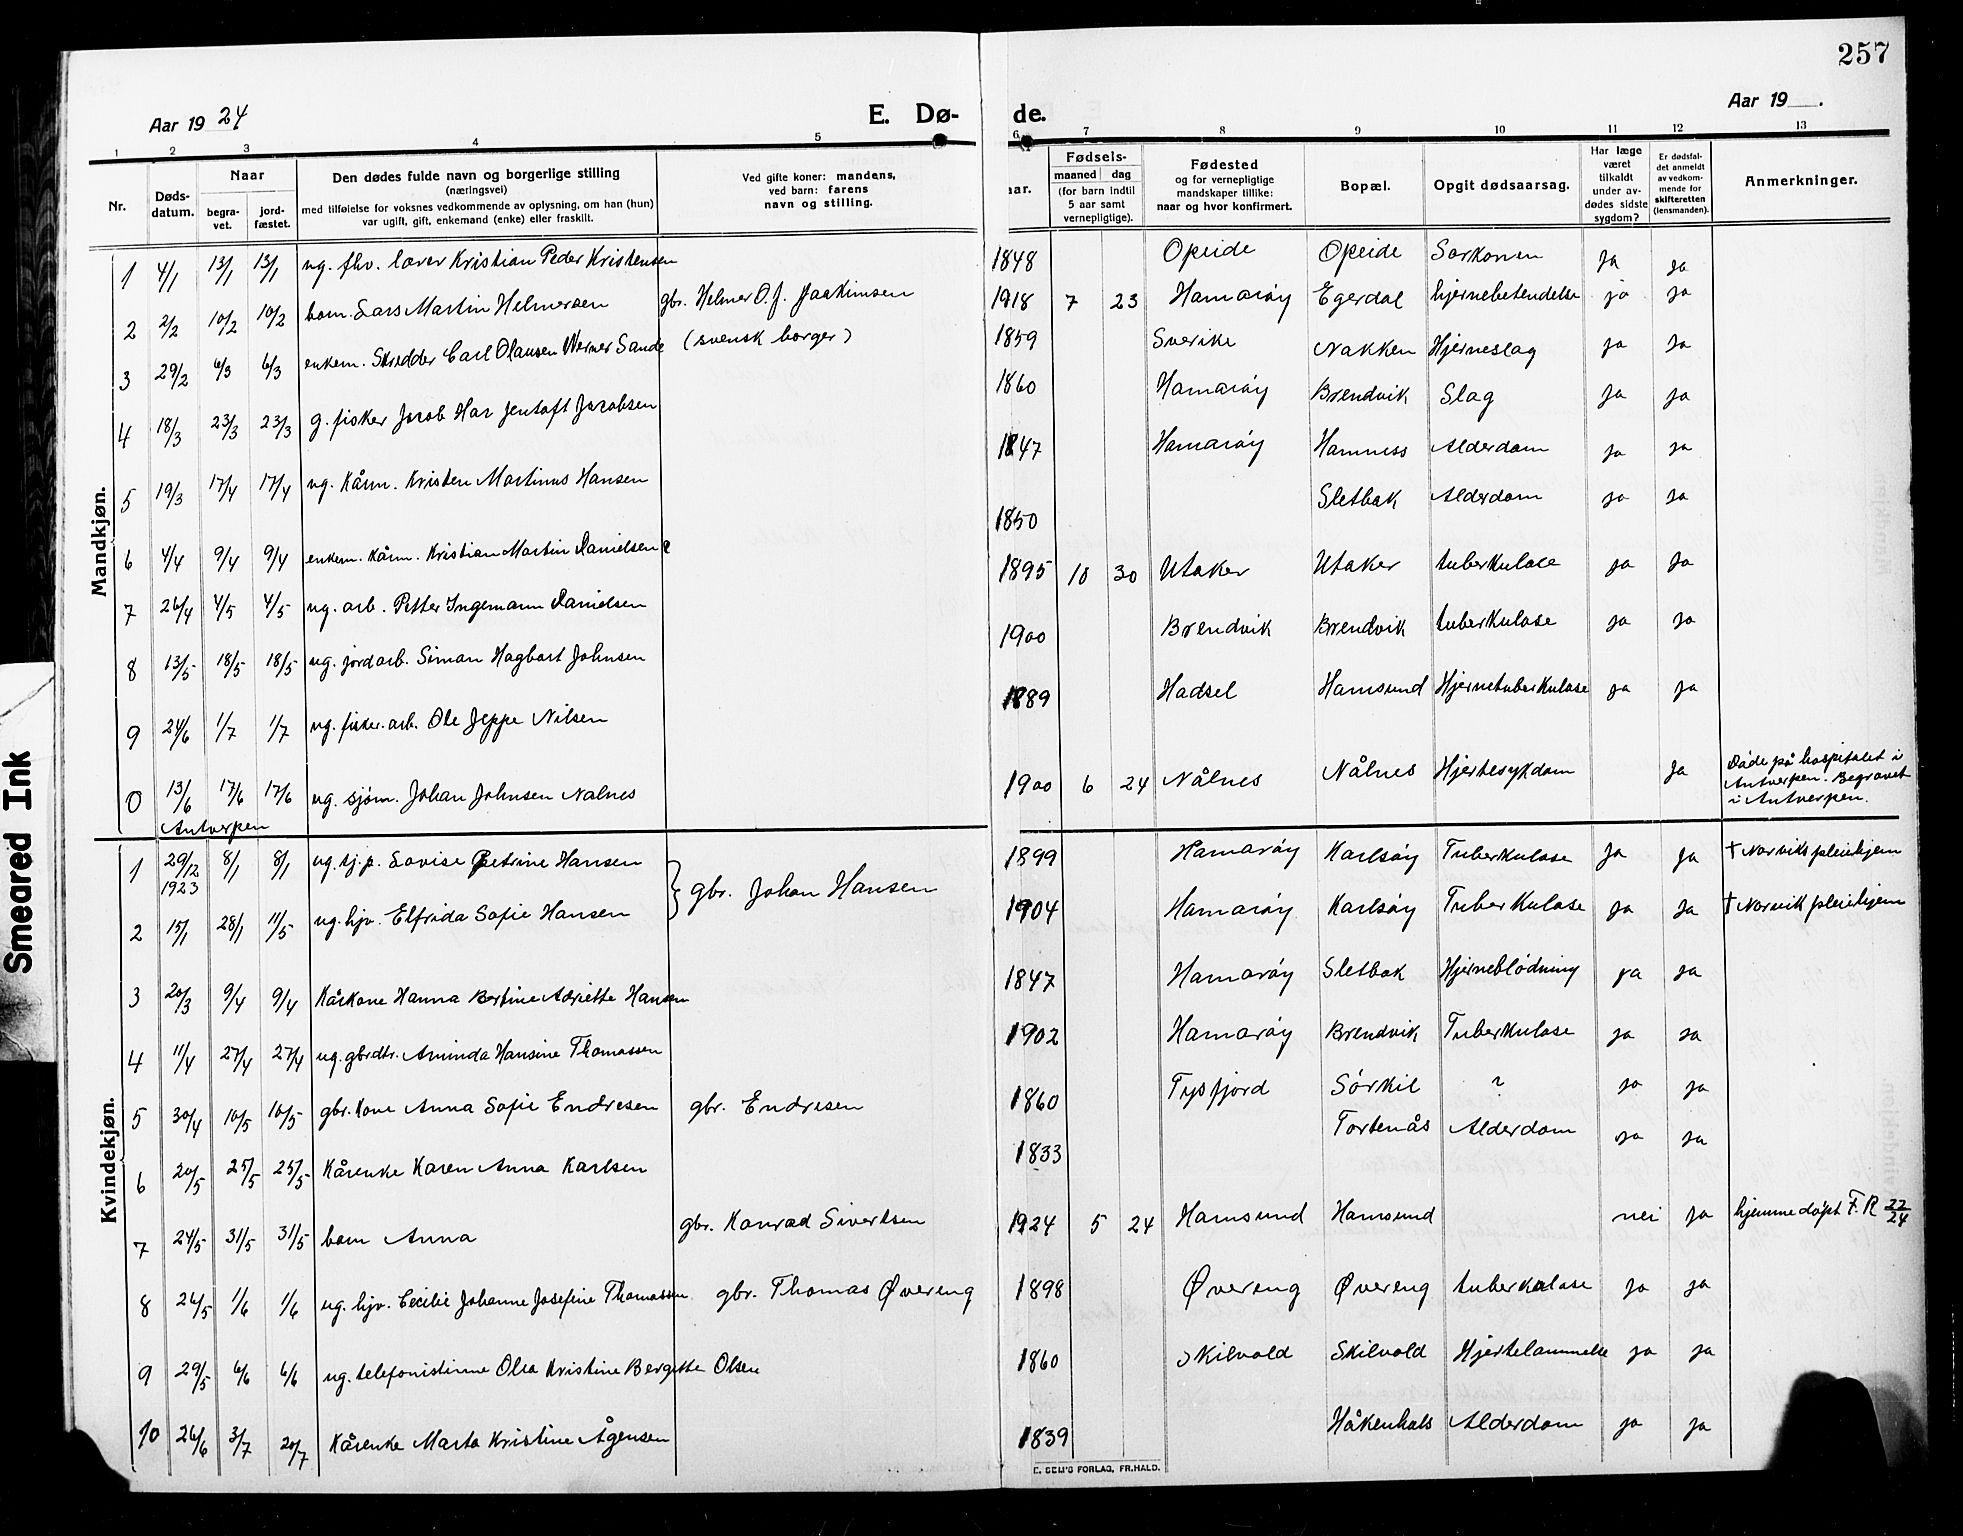 257
Aar 1924
E. Dø-
de.
Aar 19 .
1 2 3 4 5 6 7 8 9 10 11 12 13
Nr.
Døds-
datum.
Naar
begra-
vet.
jord-
fæstet.
Den dødes fulde navn og borgerlige stilling
(næringsvei)
med tilføielse for voksnes vedkommende av oplysning, om han (hun)
var ugift, gift, enkemand (enke) eller fraskilt.
Ved gifte koner: mandens,
ved barn: farens
navn og stilling.
aar.
Fødsels-
maaned dag
(for barn indtil
5 aar samt
vernepligtige).
Fødested
og for vernepligtige
mandskaper tillike:
naar og hvor konfirmert.
Bopæl.
Opgit dødsaarsag.
Har læge
været
tilkaldt
under av-
dødes sidste
sygdom?
Er dødsfal-
det anmeldt
av vedkom-
mende for
skifteretten
(lensmanden).
Anmerkninger.
Mandkjøn.
1 4/1 13/1 13/1 ug. fhv. lærer Kristian Peder Kristensen 1848 Opeide Opeide Sarkomen ja ja
2 2/2 10/2 10/2 barn. Lars Martin Helmersen gbr. Helmer O. J. Joakimsen 1918 7 23 Hamarøy Egerdal hjernebetendelse ja ja
(svensk borger)
3 29/2 6/3 6/3 enkem. Skredder Carl Olausen Werner Sande 1859 Sverike Nakken Hjerneslag ja ja
4 18/3 23/3 23/3 g. fisker Jacob Har Jentoft Jacobsen 1860 Hamarøy Brendvik Slag ja ja
5 19/3 17/4 17/4 ug. Kårm. Kristen Martinus Hansen 1847 Hamarøy Hamness Alderdom ja ja
6 4/4 9/4 9/4 enkem. Kårm. Kristian Martin Danielsen 1850 Sletbak Alderdom ja ja
7 26/4 4/5 4/5 ug. arb. Petter Ingemann Danielsen 1895 10 30 Utaker Utaker tuberkulose ja ja
8 13/5 18/5 18/5 ug. jordarb. Simon Hagbart Johnsen 1900 Brendvik Brendvik tuberkulose ja ja
9 24/6 1/7 1/7 ug. fisker. arb. Ole Jeppe Nilsen 1889 Hadsel Hamsund Hjernetuberkulose ja ja
0 13/6 17/6 17/6 ug. sjøm. Johan Johnsen Nalnes 1900 6 24 Nålnes Nålnes Hjertesykdom ja Døde på hospitalet i
Antverpen. Begravet
i Antverpen.
Antverpen
Kvindekjøn.
1 29/12 1923 8/1 8/1 ug. tj. p. Lovise Petrine Hansen } gbr. Johan Hansen 1899 Hamarøy Karlsøy Tuberkulose ja ja † Norviks pleiehjem
2 15/1 28/1 11/5 ug. hjv. Elfrida Sofie Hansen 1904 Hamarøy Karlsøy Tuberkulose ja ja † Norvik pleiehjem
3 20/3 9/4 9/4 Kårkone Hanna Bertine Adriette Hansen 1847 Hamarøy Sletbak Hjerneblødning ja ja
4 11/4 27/4 27/4 ug. gbrdtr. Aminda Hansine Thomassen 1902 Hamarøy Brendvik Tuberkulose ja ja
5 30/4 10/5 10/5 gbr. Kone Anna Sofie Endresen gbr. Endresen 1860 Tysfjord Sørkil ? ja ja
6 20/5 25/5 25/5 Kårenke Karen Anna Karlsen 1833 Tortenås Alderdom ja ja
7 24/5 31/5 31/5 barn Anna gbr. Konrad Sivertsen 1924 5 24 Hamsund Hamsund nei ja hjemmedøpt F. R 22/24
8 26/5 1/6 1/6 ug. hjv. Cecilie Johanne Josefine Thomassen gbr. Thomas Øvereng 1898 Øvereng Øvereng tuberkulose ja ja
9 29/5 6/6 6/6 ug. telefonistinne Olea Kristine Bergitte Olsen 1860 Skilvold Skilvold Hjertelammelse ja ja
10 26/6 3/7 20/7 Kårenke Marta Kristine Ågensen 1839 Håkenhals Alderdom ja ja
E. SEM'S FORLAG, FR.HALD.
Smeared Ink